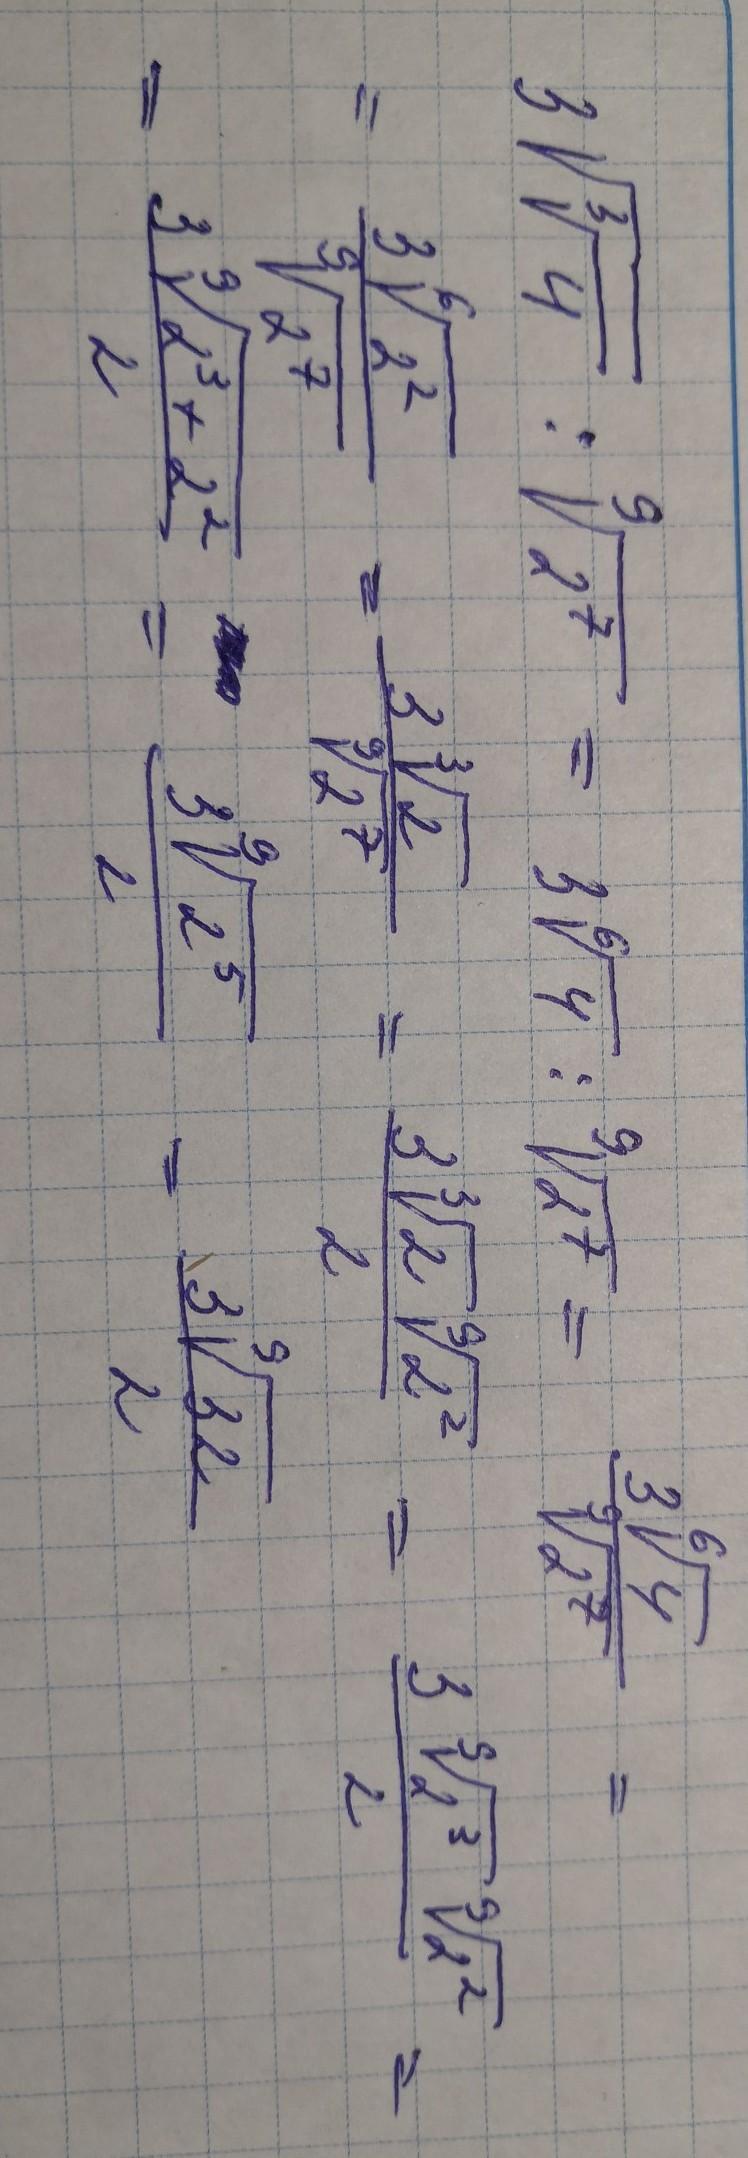 3√∛4 : ⁹√2⁷ = 3⁶√4 : ⁹√2⁷ = 3⁶√4 / ⁹√2⁷ =
= 3⁶√2² / ⁹√2⁷ = 3∛2 / ⁹√2⁷ = 3∛2 ⁹√2² / 2 = 3 ⁹√2³ ⁹√2² / 2 =
= 3⁹√(2³ + 2²) / 2 = 3⁹√2⁵ / 2 = 3⁹√32 / 2